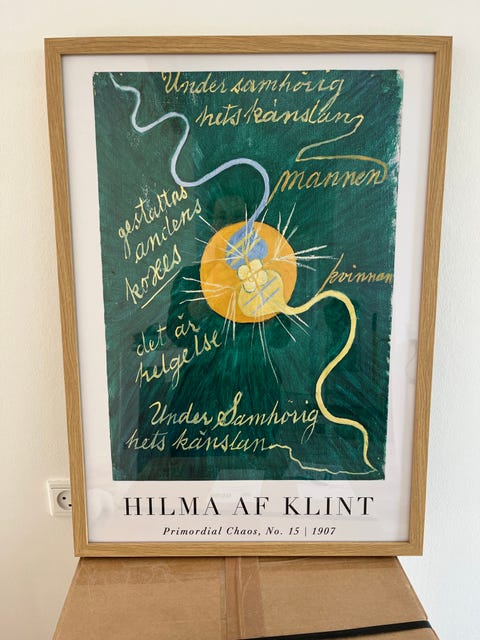 Under samhörig
hets känslan
mannen
gestaltas
andens
koxes
kvinnan
det är
helgelse
Under Samhörig
hets känslan
HILMA AF KLINT
Primordial Chaos, No. 15 | 1907